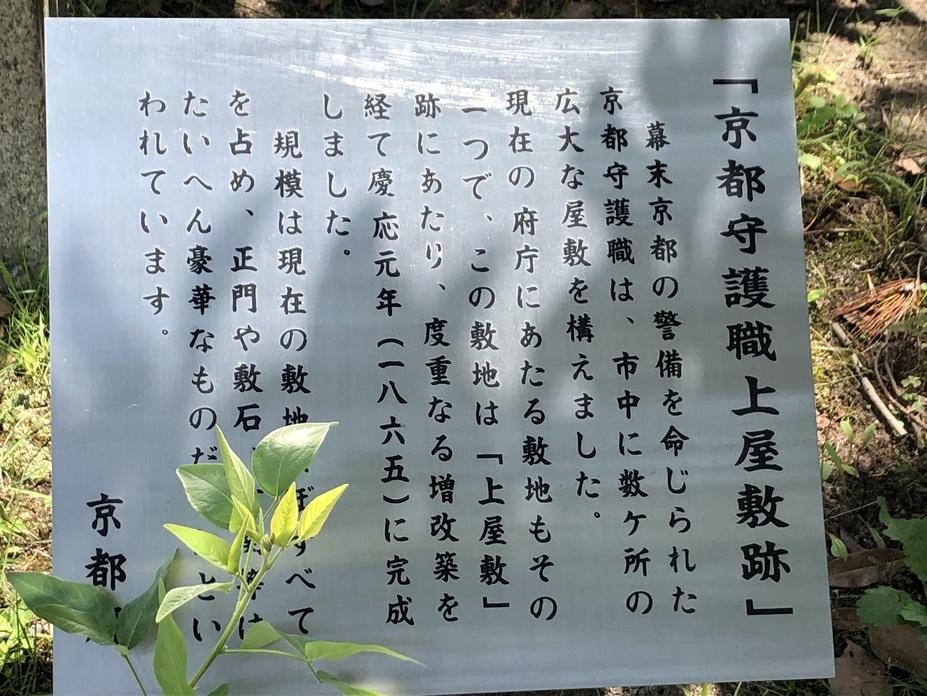 「京都守護職上屋敷跡」
幕末京都の警備を命じられた
京都守護職は、市中に数ケ所の
広大な屋敷を構えました。
現在の府庁にあたる敷地もその
一つで、この敷地は「上屋敷」
跡にあたり、度重なる増改築を
経て慶応元年(一八六五)に完成
しました。
規模は現在の敷地ぼすべて
を占め、正門や敷石は
たいへん豪華なものだとい
われています。
京都